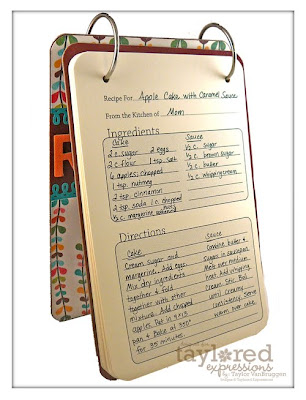 R
Recipe For Apple Cake with Caramel Sauce
From the Kitchen of Mom
Ingredients
Cake Sauce
2 c. sugar 2 eggs ½ c. sugar
2 c. flour 1 tsp. salt ½ c. brown sugar
apples; chopped ½ c. butter
1 tsp. nutmeg ½ c. whipping cream
2 tsp. cinnamon
2 tsp. soda 1 c. chopped
½ c. margarine
Directions
Cake Sauce
Cream sugar and Combine butter &
margarine. Add eggs. sugar in saucepan.
Mix dry ingredients Melt over medium
together & fold heat. Add whipping
together with other Cream. Stir. Boil
mixture. Add chopped until creamy
apples. Put in 9x13 consistency. Serve
pan & Bake at 350° warm over cake.
for 35 minutes.
taylored
expressions
by: Taylor VanBruggen